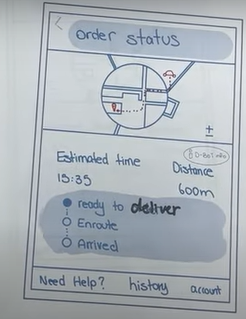 order status
Estimated time
Distance
15:35
600m
ready to deliver
Enroute
Arrived
Need Help? history account